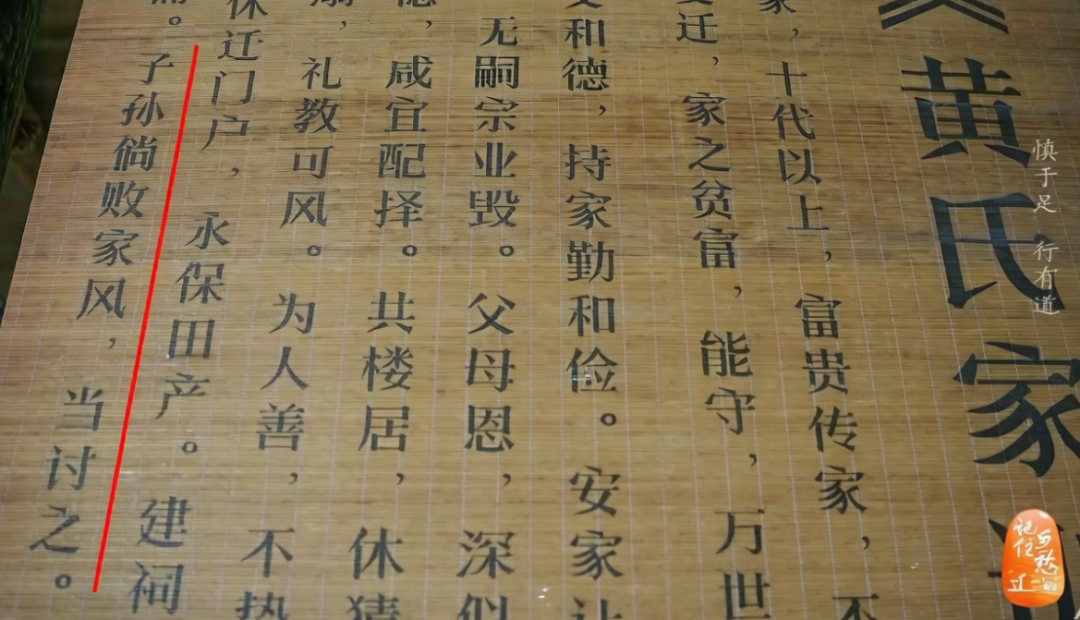 《黄氏家
家，十代以上，富贵传家，不
变迁，家之贫富，能守，万世
和德，持家勤和俭。安家让
无嗣宗业毁。父母恩，深似
德，咸宜配择。共楼居，休猜
，礼教可风。为人善，不
休迁门户，永保田产。建祠
。子孙倘败家风，当讨之。
慎于足 行有道
记住乡愁